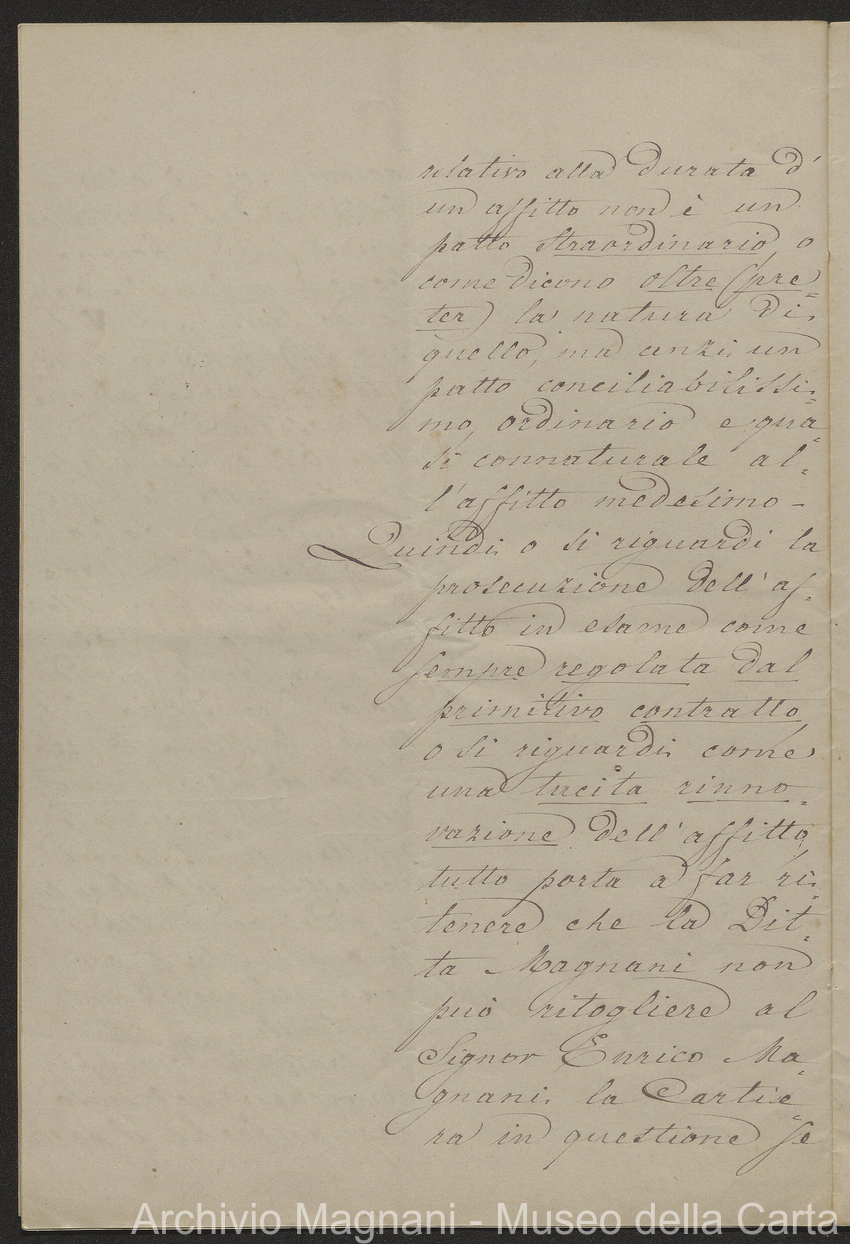 relativo alla durata d'
un affitto non è un
patto straordinario, o
come dicono oltre (pre=
ter) la natura di
quello, ma anzi un
patto conciliabilissi=
mo, ordinario e qua=
si connaturale al=
l'affitto medesimo -
Quindi o si riguardi la
prosecuzione dell'af=
fitto in esame come
sempre regolata dal
primitivo contratto,
o si riguardi come
una tacita rinno=
vazione dell'affitto,
tutto porta a far ri=
tenere che la Dit=
ta Magnani non
può ritogliere al
Signor Enrico Ma=
gnani la Cartie=
ra in questione se
Archivio Magnani - Museo della Carta